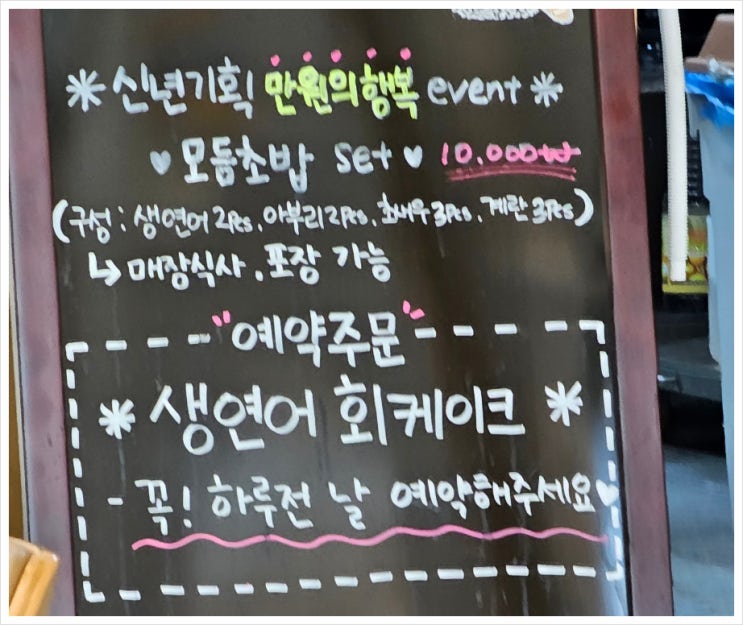 * 신년기획 만원의행복 event *
♥ 모듬초밥 set ♥ 10.000₩
(구성 : 생연어 2Pcs, 아부리 2Pcs, 초새우 3Pcs, 계란 3Pcs)
↳ 매장식사, 포장 가능
"예약주문"
* 생연어 회케이크 *
- 꼭! 하루전 날 예약해주세요♥